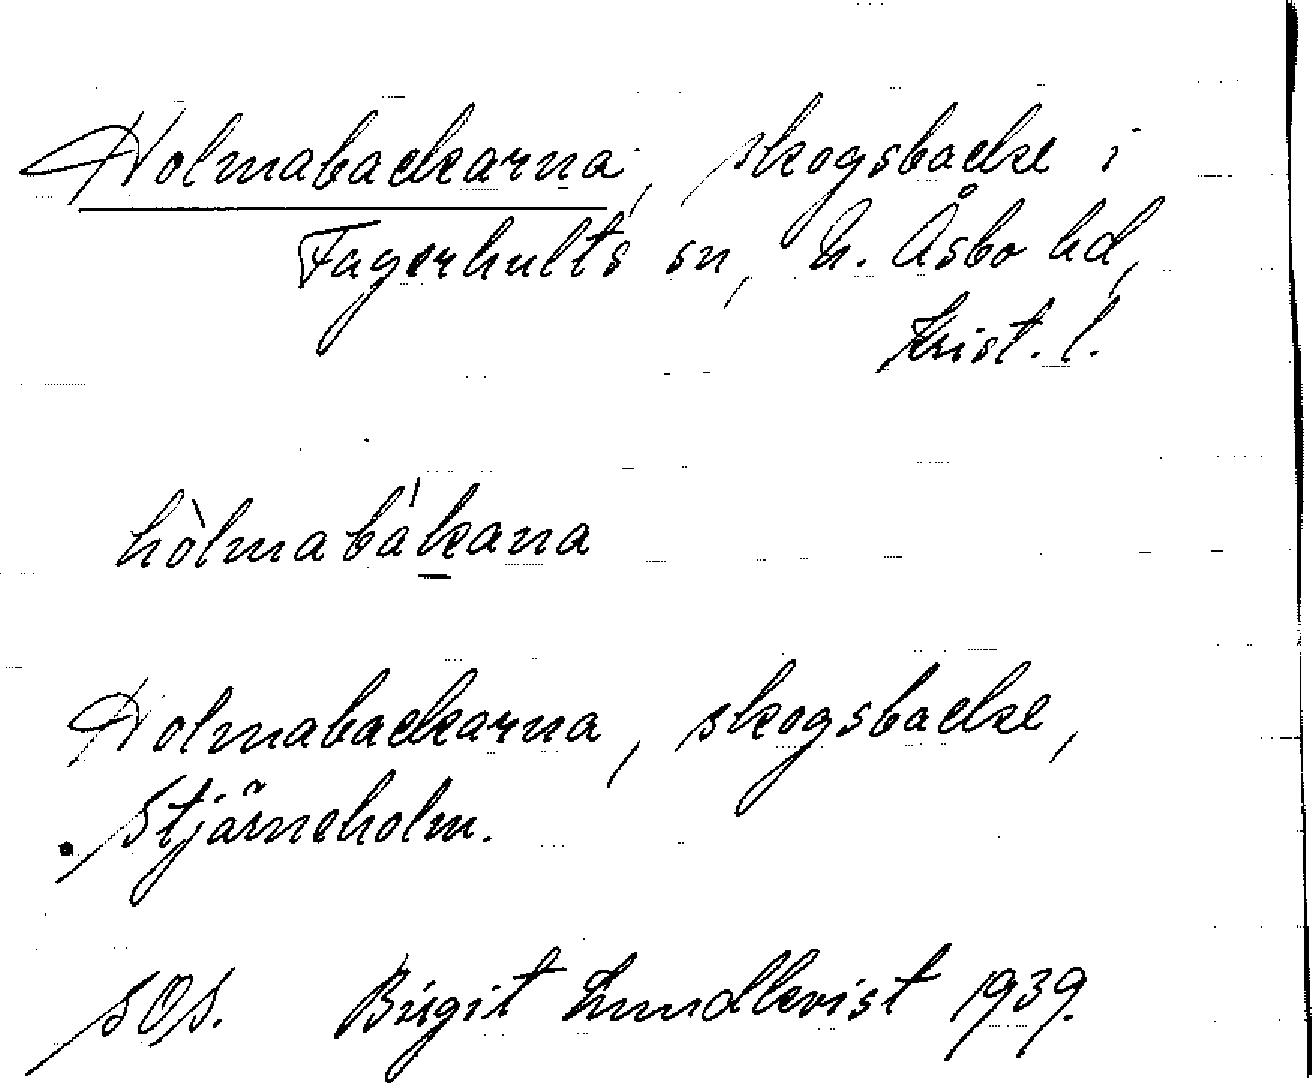 Holmabackarna, skogsbacke i
Fagerhults sn, N. Åsbo hd,
Krist. l.
hòlmabákana
Holmabackarna, skogsbacke,
Stjärneholm.
SOS. Birgit Lundkvist 1939.